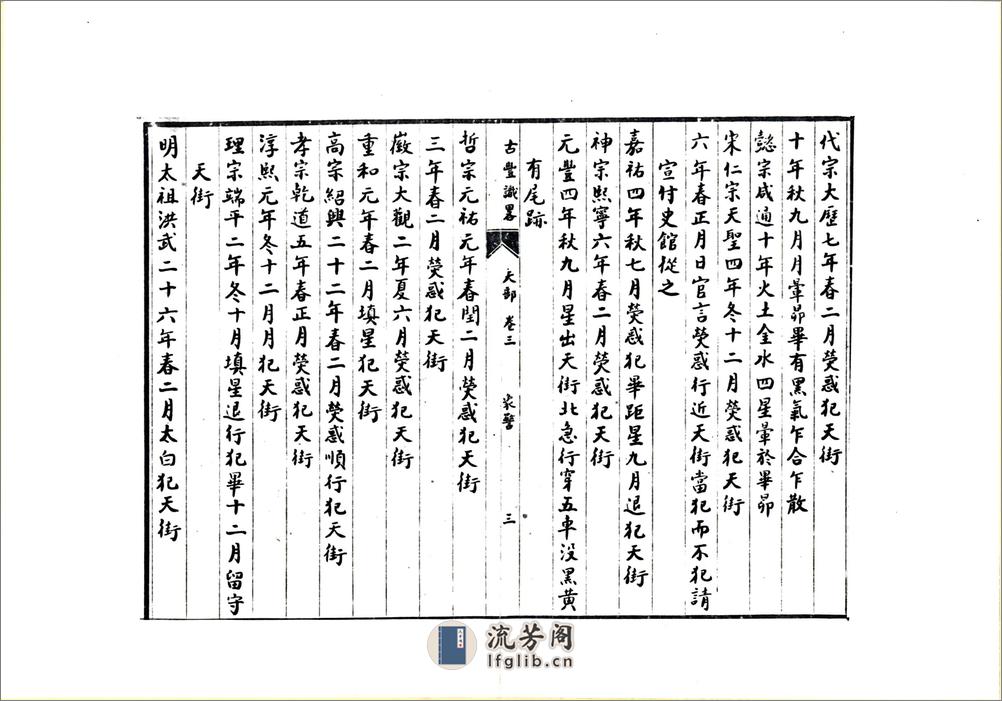 代宗大歷七年春二月熒惑犯天街
十年秋九月月暈昴畢有黑氣乍合乍散
懿宗咸通十年火土金水四星暈於畢昴
宋仁宗天聖四年冬十二月熒惑犯天街
六年春正月日官言熒惑行近天街當犯而不犯請
宣付史館從之
嘉祐四年秋七月熒惑犯畢距星九月退犯天街
神宗熙寧六年春二月熒惑犯天街
元豐四年秋九月星出天街北急行穿五車沒黑黃
有尾跡
古豐識畧 天部 卷三 象 三
哲宗元祐元年春閏二月熒惑犯天街
三年春二月熒惑犯天街
徽宗大觀二年夏六月熒惑犯天街
重和元年春二月填星犯天街
高宗紹興二十二年春二月熒惑順行犯天街
孝宗乾道五年春正月熒惑犯天街
淳熙元年冬十二月月犯天街
理宗端平二年冬十月填星退行犯畢十二月留守
天街
明太祖洪武二十六年春二月太白犯天街
流芳阁
lfglib.cn